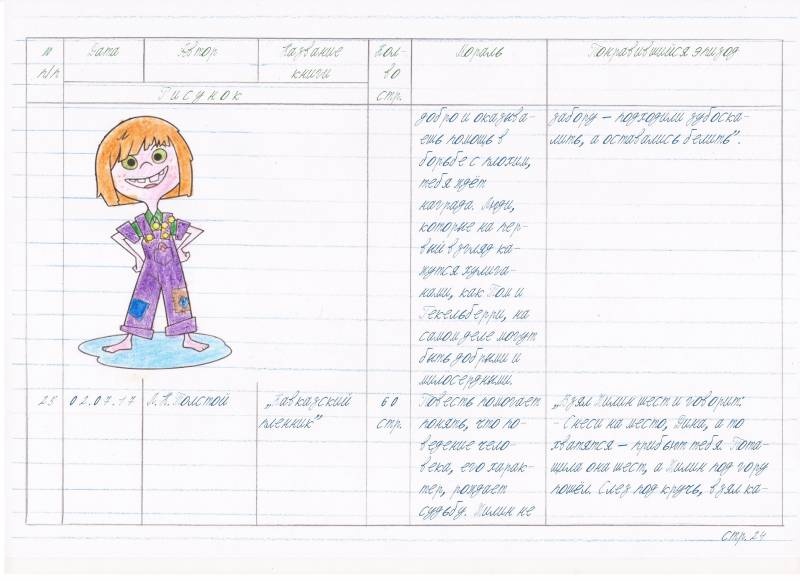 N п/п
Дата
Автор
Название
книги
Кол-
во
стр.
Мораль
Понравившийся эпизод
Рисунок
добро и оказыва-
ешь помощь в
борьбе с плохим,
тебя ждёт
награда. Люди,
которые на пер-
вый взгляд ка-
жутся хулига-
нами, как Том и
Гекельберри, на
самом деле могут
быть добрыми и
милосердными.
забору – подходили зубоска-
лить, а оставались белить".
23
02.07.17
Л.Н.Толстой
„Кавказский
пленник"
60
стр.
Повесть помогает
понять, что по-
ведение чело-
века, его харак-
тер, рождает
судьбу. Жилин не
„Взял Жилин шест и говорит:
- Снеси на место, Дина, а то
хватятся – прибьют тебя. Пота-
щила она шест, а Жилин под гору
пошёл. Слез под кручь, взял ка-
стр. 24